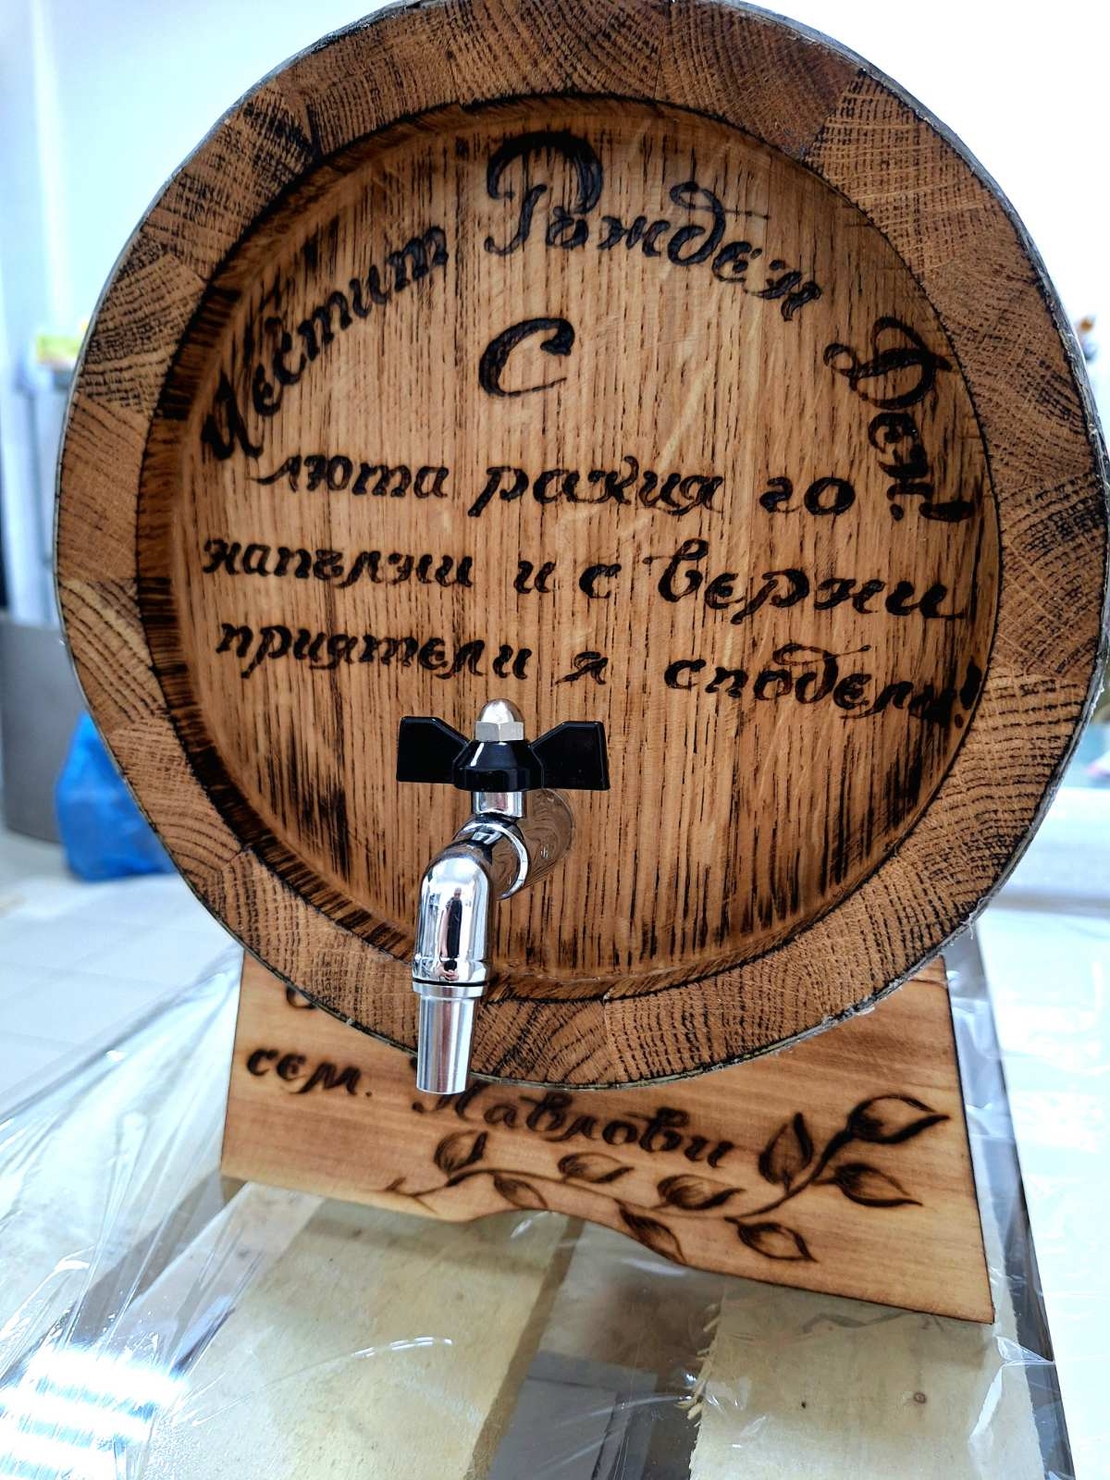 Честит Рожден Ден!
С
люта ракия го
напълни и с верни
приятели я сподели!
сем. Павлови